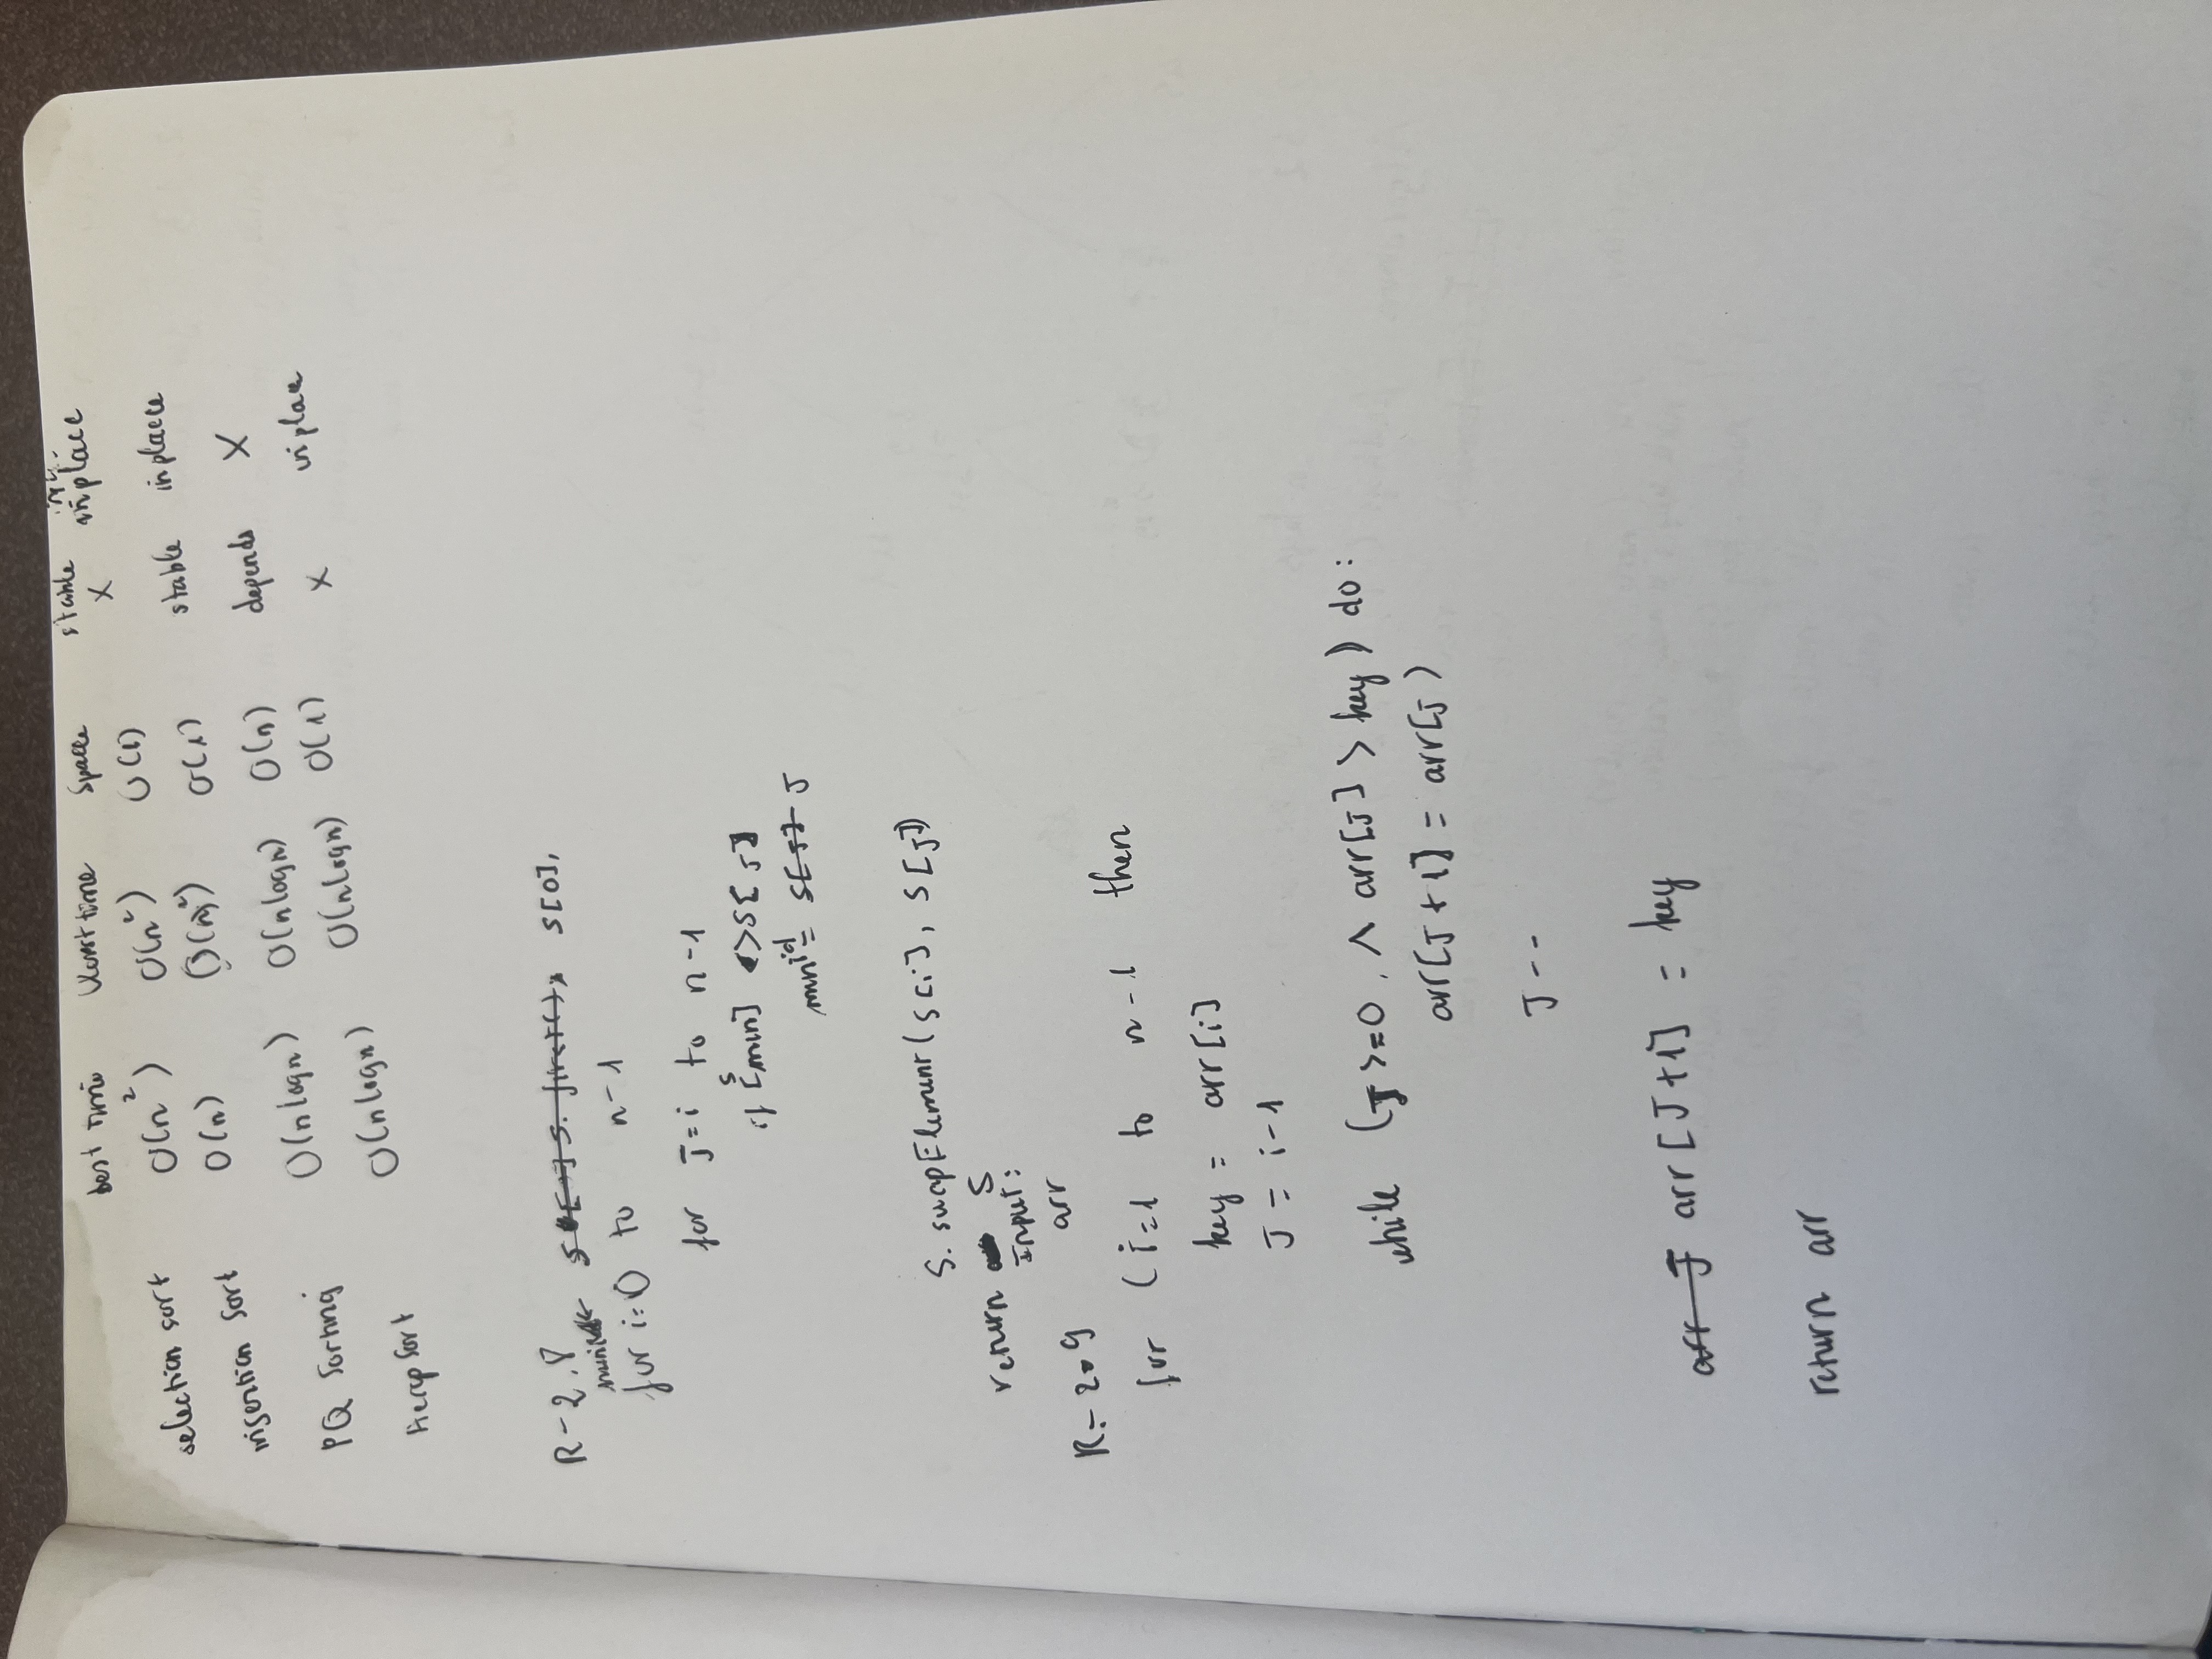 best time Worst time Space stable inplace
selection sort O(n²) O(n²) O(1) X
insertion sort O(n) O(n²) O(1) stable inplace
PQ Sorting O(n logn) O(n logn) O(n) depends X
Heap Sort O(n logn) O(n logn) O(1) X inplace
R-2.8 S[0],
for i=0 to n-1
for J=i to n-1
if S[min] > S[J]
minid = J
S. swapElement(S[i], S[J])
return S
Input:
R-2.9 arr
for (i=1 to n-1 then
key = arr[i]
J = i-1
while (J>=0, ∧ arr[J] > key) do:
arr[J+1] = arr[J)
J--
arr[J+1] = key
return arr